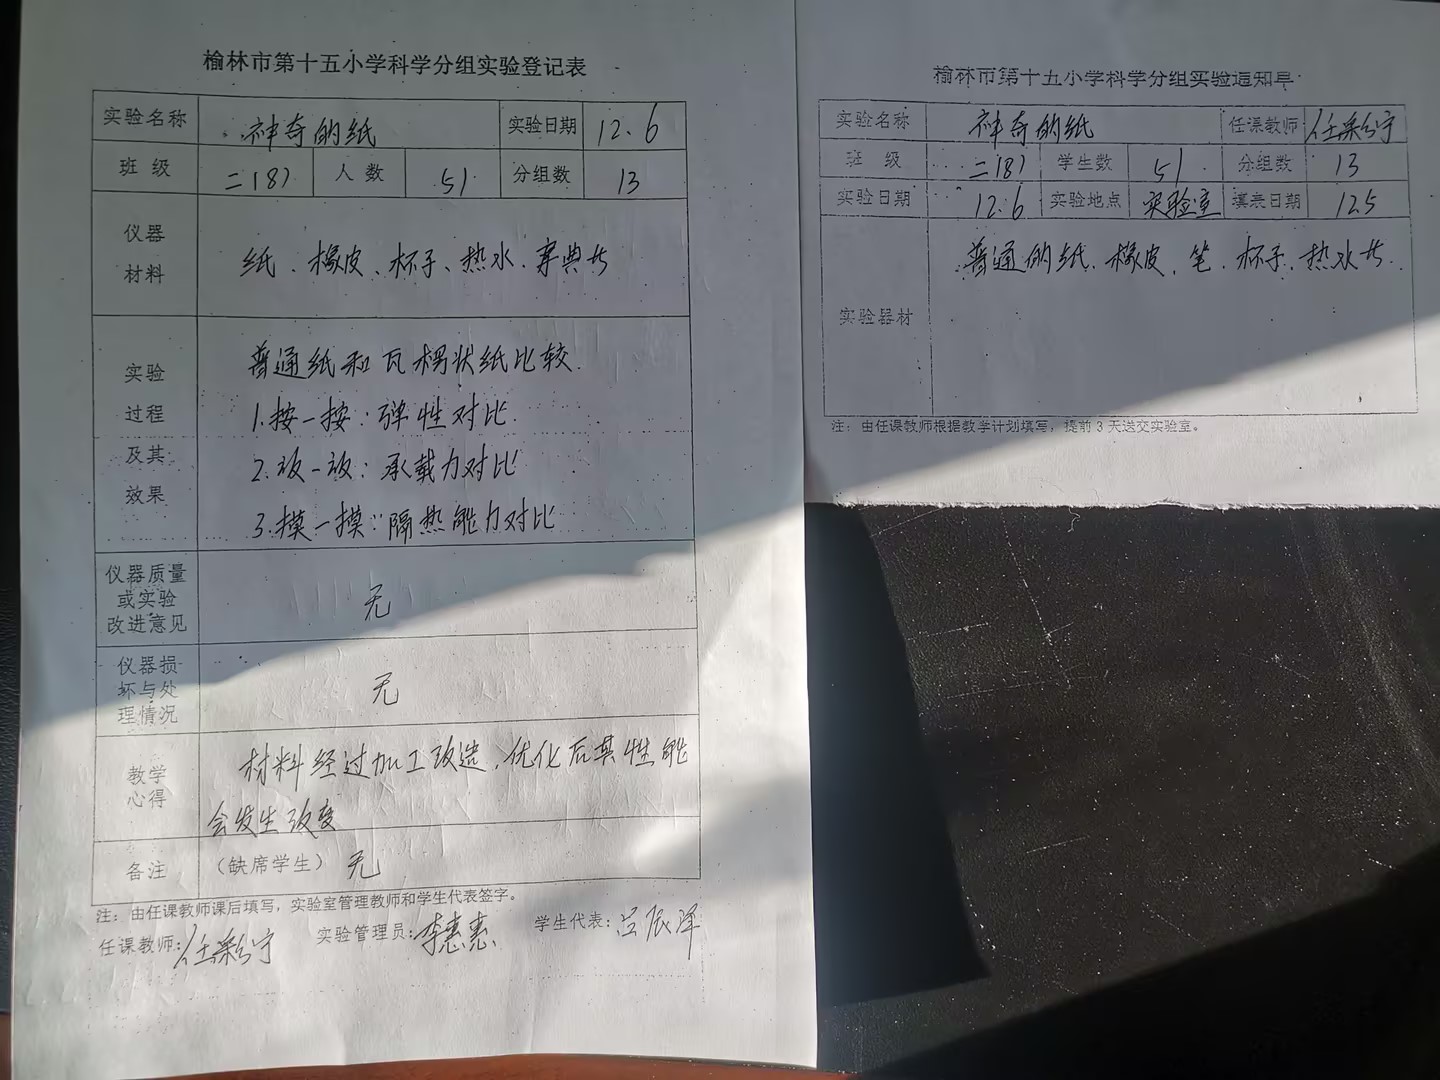 榆林市第十五小学科学分组实验登记表
实验名称 神奇的纸 实验日期 12.6
班级 二(8) 人数 51 分组数 13
仪器
材料
纸、橡皮、杯子、热水、字典等
实验
过程
及其
效果
普通纸和瓦楞状纸比较.
1.按一按:弹性对比
2.放一放:承载力对比
3.摸一摸:隔热能力对比
仪器质量
或实验
改进意见
无
仪器损
坏与处
理情况
无
教学
心得
材料经过加工改造,优化后其性能
会发生改变
备注 (缺席学生) 无
注:由任课教师课后填写,实验室管理教师和学生代表签字。
任课教师: 实验管理员:李惠惠 学生代表:吕辰泽
榆林市第十五小学科学分组实验通知单
实验名称 神奇的纸 任课教师
班级 二(8) 学生数 51 分组数 13
实验日期 12.6 实验地点 实验室 填表日期 12.5
实验器材
普通的纸、橡皮、笔、杯子、热水等.
注:由任课教师根据教学计划填写,提前3天送交实验室。